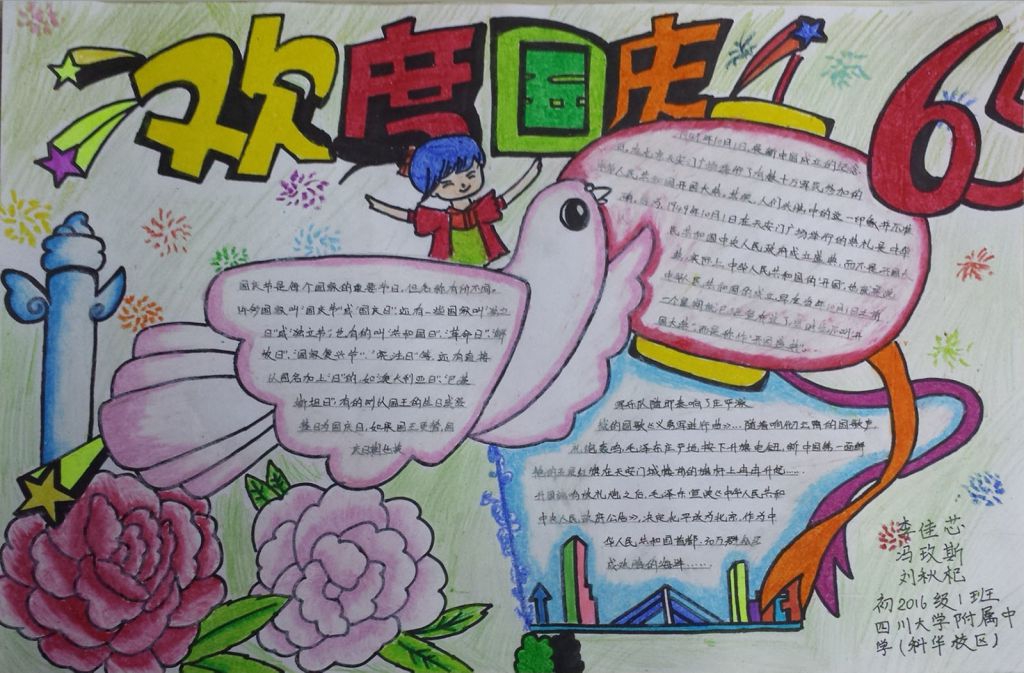 欢度国庆
65
国庆节是每个国家的重要节日,但名称有所不同。
许多国家叫"国庆节"或"国庆日",还有一些国家叫"独立
日"或"独立节",也有的叫"共和日"、"革命日"、"解
放日"、"国家复兴节"、"宪法日"等,还有直接
以国名加上"日"的,如"澳大利亚日"、"巴基
斯坦日",有的则以国王的生日或登
基日为国庆日,如遇国王更替,国
庆日期也换
1949年10月1日,是新中国成立的纪念
日。在北京天安门广场举行了有数十万军民参加的
中华人民共和国开国大典。其实,人们头脑中的这一印象并不准
确。因为,1949年10月1日在天安门广场举行的典礼是中华
人民共和国中央人民政府成立盛典,而不是开国大
典。实际上,中华人民共和国的开国,也就是说
中华人民共和国的成立,早在当年10月1日之前
一个星期就已经宣布了。当时也不叫开
国大典,而是称作"开国盛典"。
军乐队随即奏响了庄严激
越的国歌《义勇军进行曲》……随着响彻云霄的国歌声,
礼炮轰鸣。毛泽东庄严地按下升旗电钮,新中国第一面鲜
艳的五星红旗在天安门城楼前的旗杆上冉冉升起……
升国旗鸣放礼炮之后,毛泽东宣读《中华人民共和
中央人民政府公告》,决定北平改为北京,作为中
华人民共和国首都。30万群众
成欢腾的海洋……
李佳芯
冯玫斯
刘秋杞
初2016级1班
四川大学附属中
学(科华校区)